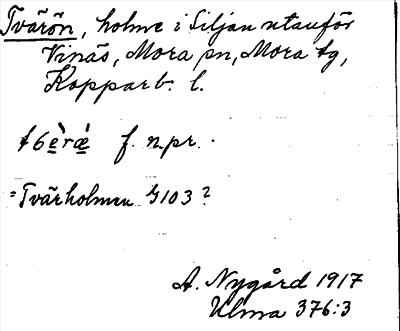 Tvärön, holme i Siljan utanför
Vinäs, Mora sn, Mora tg,
Kopparb. l.
f. n.pr.
= Tvärholmen G103?
A. Nygård 1917
Ulma 376:3